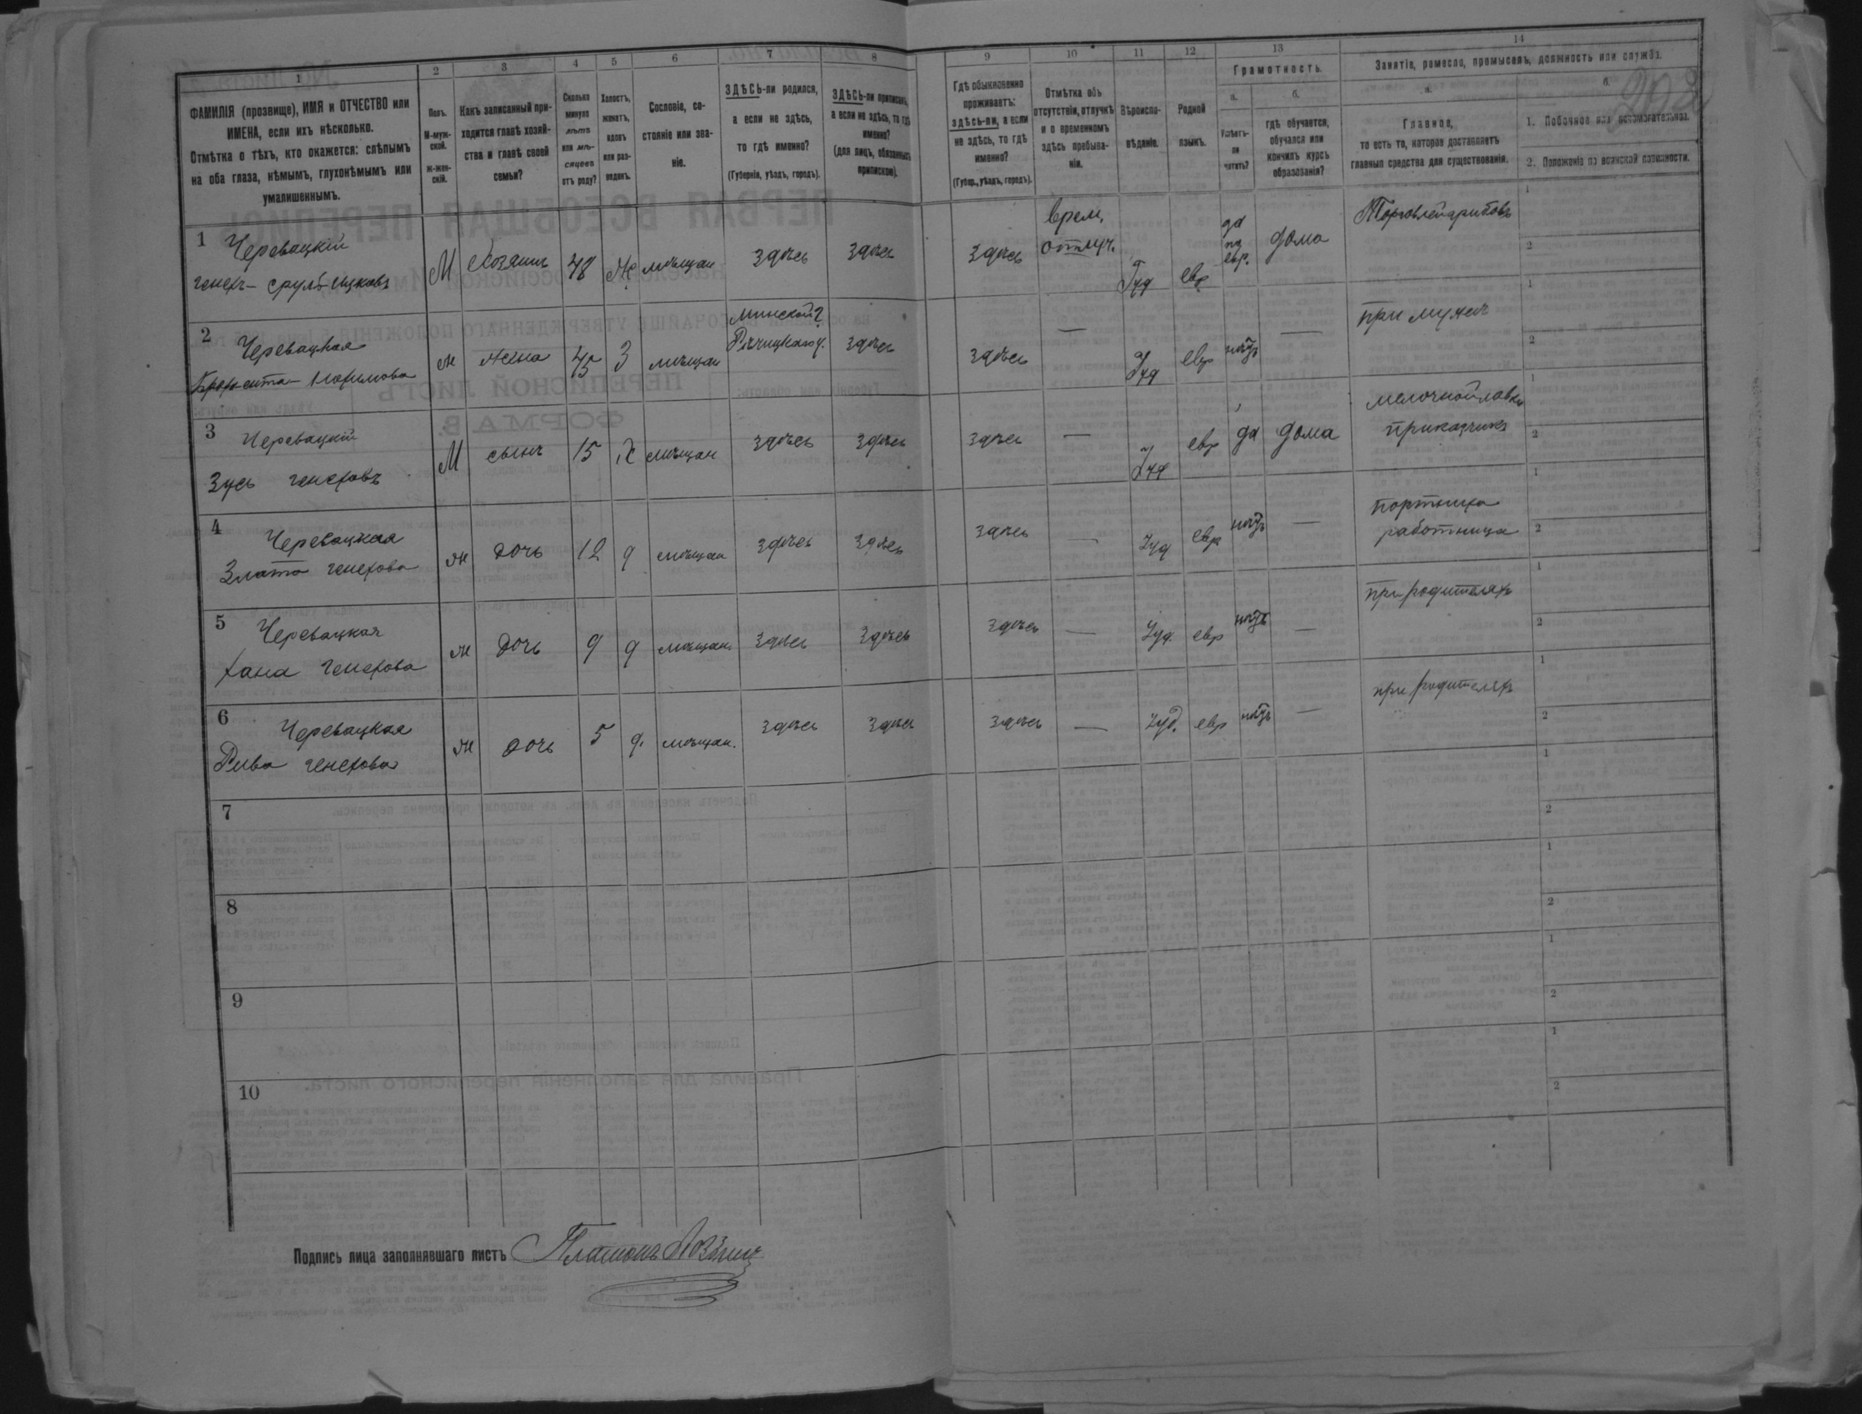 1 2 3 4 5 6 7 8 9 10 11 12 13 14
ФАМИЛІЯ (прозвище), ИМЯ и ОТЧЕСТВО или
ИМЕНА, если ихъ нѣсколько.
Отмѣтка о тѣхъ, кто окажется: слѣпымъ
на оба глаза, нѣмымъ, глухонѣмымъ или
умалишеннымъ.
Полъ.
М-муж-
ской.
Ж-жен-
скій.
Какъ записанный при-
ходится главѣ хозяй-
ства и главѣ своей
семьи?
Сколько
минуло
лѣтъ
или мѣ-
сяцевъ
отъ роду?
Холостъ,
женатъ,
вдовъ
или раз-
веденъ.
Сословіе, со-
стояніе или зва-
ніе.
ЗДѢСЬ-ли родился,
а если не здѣсь,
то гдѣ именно?
(Губернія, уѣздъ, городъ).
ЗДѢСЬ-ли приписанъ,
а если не здѣсь, то гдѣ
именно?
(для лицъ, обязанныхъ
припискою).
Гдѣ обыкновенно
проживаетъ:
здѣсь-ли, а если
не здѣсь, то гдѣ
именно?
(Губер., уѣздъ, городъ).
Отмѣтка объ
отсутствіи, отлучкѣ
и о временномъ
здѣсь пребыва-
ніи.
Вѣроиспо-
вѣданіе.
Родной
языкъ.
Грамотность.
а.
Умѣетъ-
ли
читать?
б.
гдѣ обучается,
обучался или
кончилъ курсъ
образованія?
Занятіе, ремесло, промыселъ, должность или служба.
а.
Главное,
то есть то, которое доставляетъ
главныя средства для существованія.
б.
1. Побочное или вспомогательное.
2. Положеніе по воинской повинности.
1 Черевацкій
М Хозяинъ 48 Ж мѣщан здѣсь здѣсь здѣсь врем. отлуч. Іуд евр да по евр. дома
2 Черевацкая
ж жена 45 З мѣщан Минской г. Рѣчицкаго у. здѣсь здѣсь — Іуд евр нѣтъ — при мужѣ
3 Черевацкій
Зусь Генеховъ
М сынъ 15 Х мѣщан здѣсь здѣсь здѣсь — Іуд евр да дома мелочной лавки приказчикъ
4 Черевацкая
Злата Генехова
ж дочь 12 д мѣщан здѣсь здѣсь здѣсь — Іуд евр нѣтъ — портниха работница
5 Черевацкая
Хана Генехова
ж дочь 9 д мѣщан здѣсь здѣсь здѣсь — Іуд. евр нѣтъ — при родителяхъ
6 Черевацкая
Рива Генехова
ж дочь 5 д. мѣщан. здѣсь здѣсь здѣсь — Іуд. евр нѣтъ — при родителяхъ
7
8
9
10
Подпись лица заполнявшаго листъ Платонъ